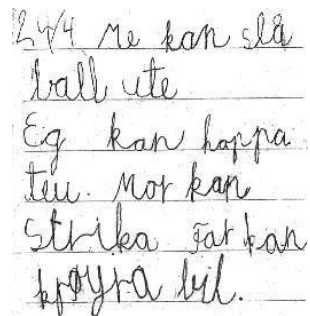 24/4 Me kan slå
ball ute
Eg kan hoppa
tau. Mor kan
strika Far kan
køyra bil.